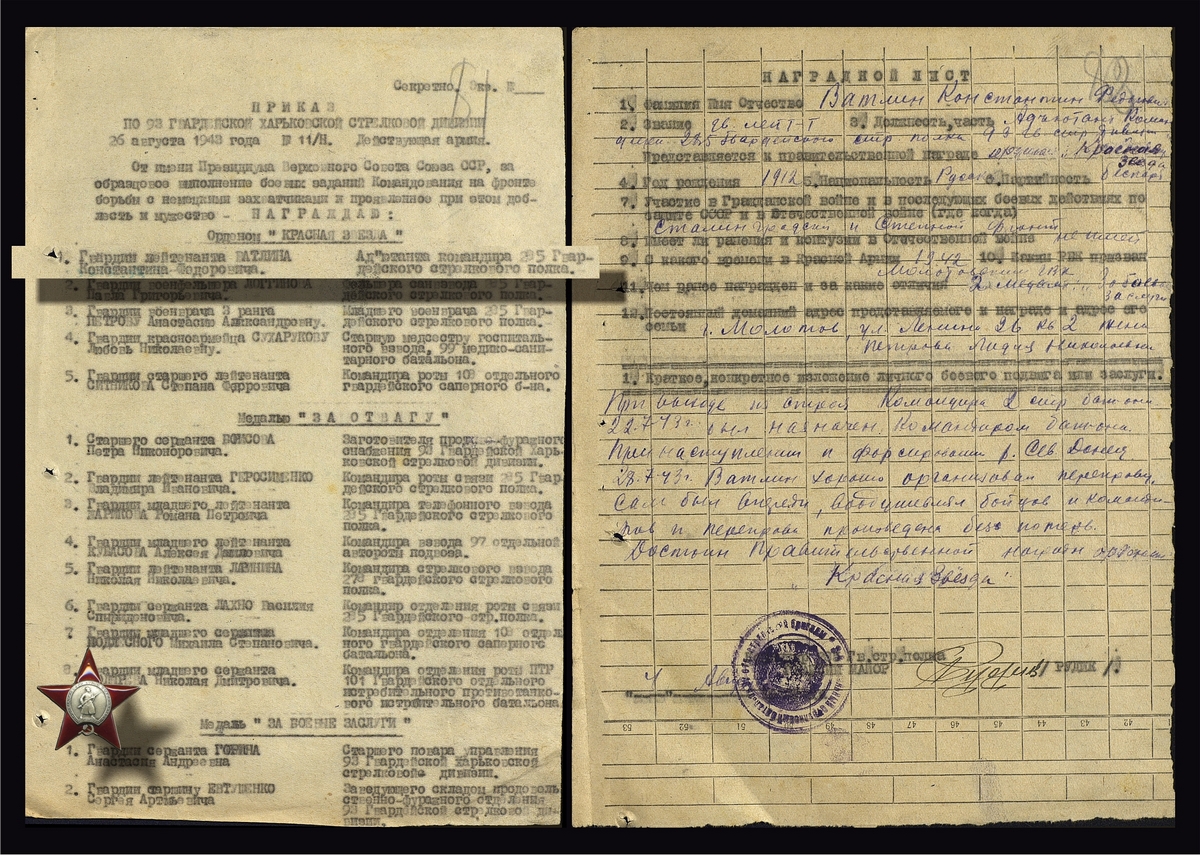 Секретно. Экз. №
81
ПРИКАЗ
ПО 93 ГВАРДЕЙСКОЙ ХАРЬКОВСКОЙ СТРЕЛКОВОЙ ДИВИЗИИ
26 августа 1943 года № 11/Н. Действующая армия.
От имени Президиума Верховного Совета Союза ССР, за
образцовое выполнение боевых заданий Командования на фронте
борьбы с немецкими захватчиками и проявленное при этом доб-
лесть и мужество - НАГРАЖДАЮ:
Орденом " КРАСНАЯ ЗВЕЗДА "
1. Гвардии лейтенанта ВАТЛИНА Ад"ютанта командира 285 Гвар-
Константина Федоровича. дейского стрелкового полка.
2. Гвардии военфельдшера ЛОГГИНОВА Фельдшера санвзвода 285 Гвар-
Павла Григорьевича. дейского стрелкового полка.
3. Гвардии военврача 3 ранга Младшего военврача 285 Гвар-
ПЕТРОВУ Анастасию Александровну. дейского стрелкового полка.
4. Гвардии красноармейца СУХАРУКОВУ Старшую медсестру госпиталь-
Любовь Николаевну. ного взвода, 99 медико-сани-
тарного батальона.
5. Гвардии старшего лейтенанта Командира роты 109 отдельного
СИТНИКОВА Степана гвардейского саперного б-на.
Медалью " ЗА ОТВАГУ "
1. Старшего сержанта БОРИСОВА Заготовителя продов.-фуражного
Петра Никоноровича. снабжения 93 Гвардейской Харь-
ковской стрелковой дивизии.
2. Гвардии лейтенанта ГЕРОСИМЕНКО Командира роты связи 285 Гвар-
Владимира Ивановича. дейского стрелкового полка.
3. Гвардии младшего лейтенанта Командира телефонного взвода
Романа Петровича 285 Гвардейского стрелкового
полка.
4. Гвардии младшего лейтенанта Командира взвода 97 отдельной
КУБАСОВА Алексея Даниловича автороты подвоза.
5. Гвардии лейтенанта ЛАВНИНА Командира стрелкового взвода
Николая Николаевича. 278 гвардейского стрелкового
полка.
6. Гвардии сержанта ЛАХНО Василия Командир отделения роты связи
Спиридоновича. 285 Гвардейского стр.полка.
7 Гвардии младшего сержанта Командира отделения 109 отдел
Михаила Степановича. ного гвардейского саперного
батальона.
8. Гвардии младшего сержанта Командира отделения роты ПТР
Николая Дмитровича. 101 Гвардейского отдельного
истребительного противотанко-
вого истребительного батальона
Медаль " ЗА БОЕВЫЕ ЗАСЛУГИ "
1. Гвардии сержанта ГОРИНА Старшего повара управления
Анастасия Андреевна 93 Гвардейской Харьковской
стрелковой дивизии.
2. Гвардии старшину ЕВТУШЕНКО Заведующего складом продоволь
Сергея Артемьевича ственно-фуражного отделения
93 Гвардейской стрелковой ди-
визии.
НАГРАДНОЙ ЛИСТ
1. Фамилия Имя Отчество Ватлин Константин Федорович
2. Звание гв. лейт-т 3. Должность,часть Адъютант Коман
дира 285 Гвардейского стр полка 93 гв. стр дивизии
Представляется к правительственной награде ордену "Красная
Звезда
4. Год рождения 1912 5. Национальность Русск 6. Партийность беспарт
7. Участие в Гражданской войне и в последующих боевых действиях по
защите СССР и в Отечественной войне (где когда)
Сталинградский и Степной фронт
8. Имеет ли ранения и контузии в Отечественной войне не имеет
9. С какого времени в Красной Армии 1942 10. Каким РВК призван
Молотовским ГВК
11. Чем ранее награжден и за какие отличия Медаль "За боевые
заслуги
12. Постоянный домашний адрес представляемого к награде и адрес его
семьи г. Молотов, ул. Ленина 26 кв 2 жена
Петрова Лидия Николаевна
1. Краткое,конкретное изложение личного боевого подвига или заслуги.
При выходе из строя Командира 2 стр батальона
22.7.43г. был назначен Командиром бат-она.
При наступлении и форсировании р. Сев Донец
28.7.43г. Ватлин хорошо организовал переправу,
сам был впереди, воодушевлял бойцов и команди-
ров и переправа произведена без потерь.
Достоин Правительственной награды ордена
"Красная Звезда".
Гв.стр.полка
МАЙОР / РУДИК /.
4 Авг
53 52 51 49 48 47 46 45 44 43 42